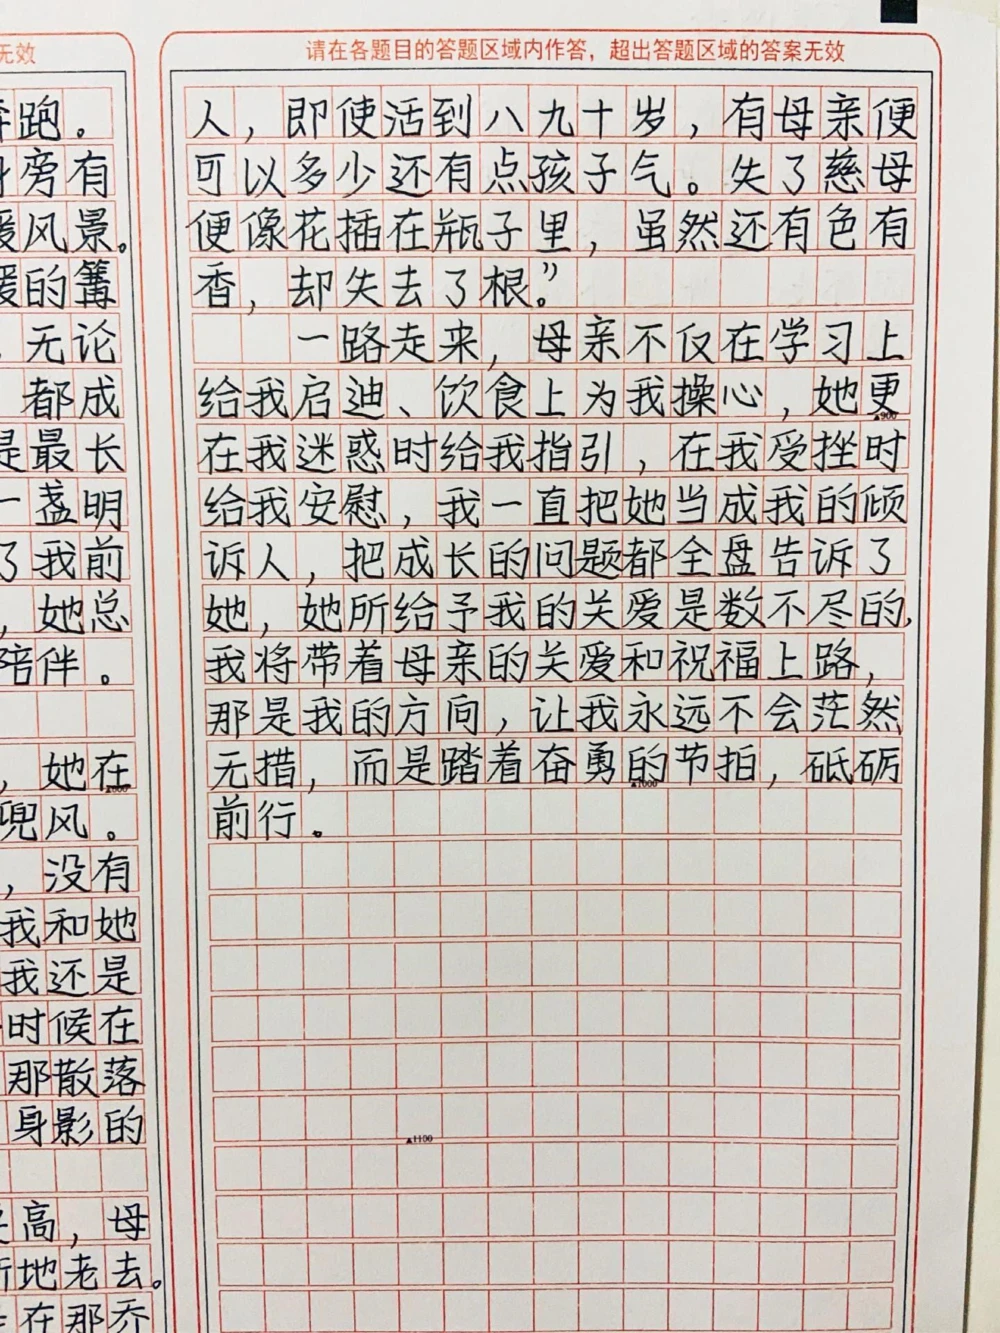 无效
奔跑。
身旁有
暖风景。
暖的篝
无论
都成
是最长
一盏明
了我前
，她总
陪伴。
，她在
兜风。
，没有
我和她
我还是
时候在
那散落
身影的
高，母
地老去。
在那乔
请在各题目的答题区域内作答，超出答题区域的答案无效
人，即使活到八九十岁，有母亲便
可以多少还有点孩子气。失了慈母
便像花插在瓶子里，虽然还有色有
香，却失去了根。”
一路走来，母亲不仅在学习上
给我启迪、饮食上为我操心，她更
▲900
在我迷惑时给我指引，在我受挫时
给我安慰，我一直把她当成我的倾
诉人，把成长的问题都全盘告诉了
她，她所给予我的关爱是数不尽的，
我将带着母亲的关爱和祝福上路，
那是我的方向，让我永远不会茫然
无措，而是踏着奋勇的节拍，砥砺
▲1000
前行。
▲1100